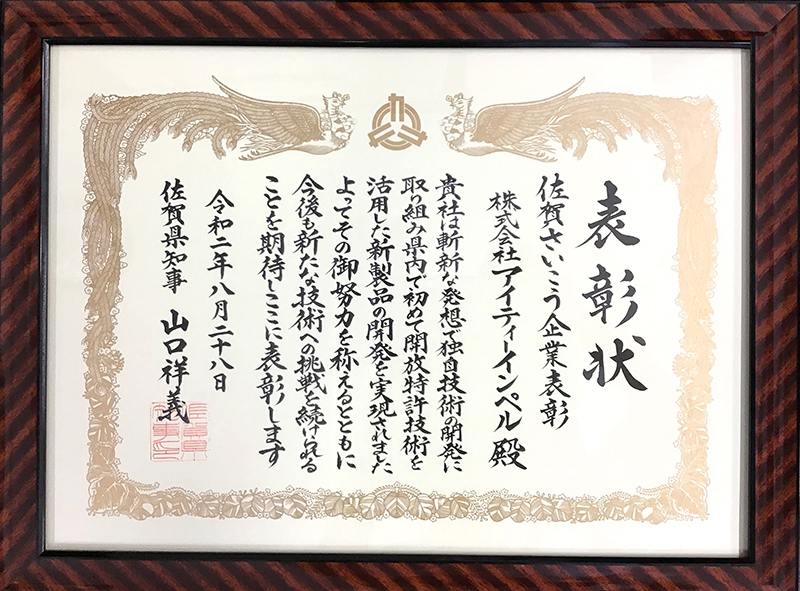 表彰状
佐賀さいこう企業表彰
株式会社アイティーインペル 殿
貴社は斬新な発想で独自技術の開発に
取り組み県内で初めて開放特許技術を
活用した新製品の開発を実現されました
よってその御努力を称えるとともに
今後も新たな技術への挑戦を続けられる
ことを期待しここに表彰します
令和二年八月二十八日
佐賀県知事 山口祥義